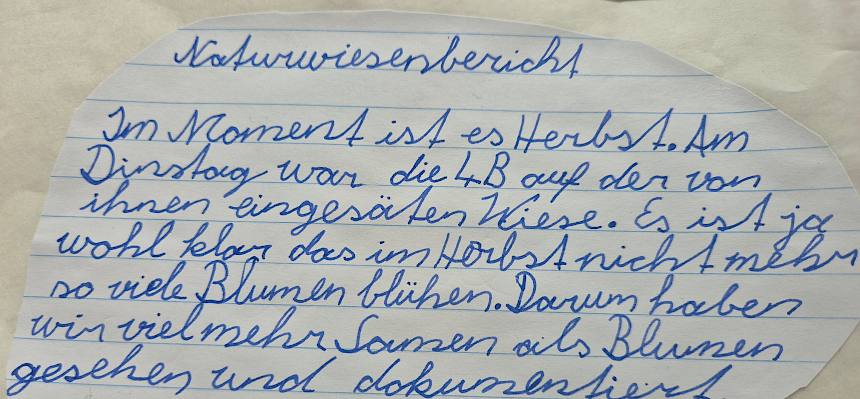 Naturwiesenbericht
Im Moment ist es Herbst. Am
Dinstag war die 4B auf der von
ihnen eingesäten Wiese. Es ist ja
wohl klar das im Herbst nicht mehr
so viele Blumen blühen. Darum haben
wir viel mehr Samen als Blumen
gesehen und dokumentiert.